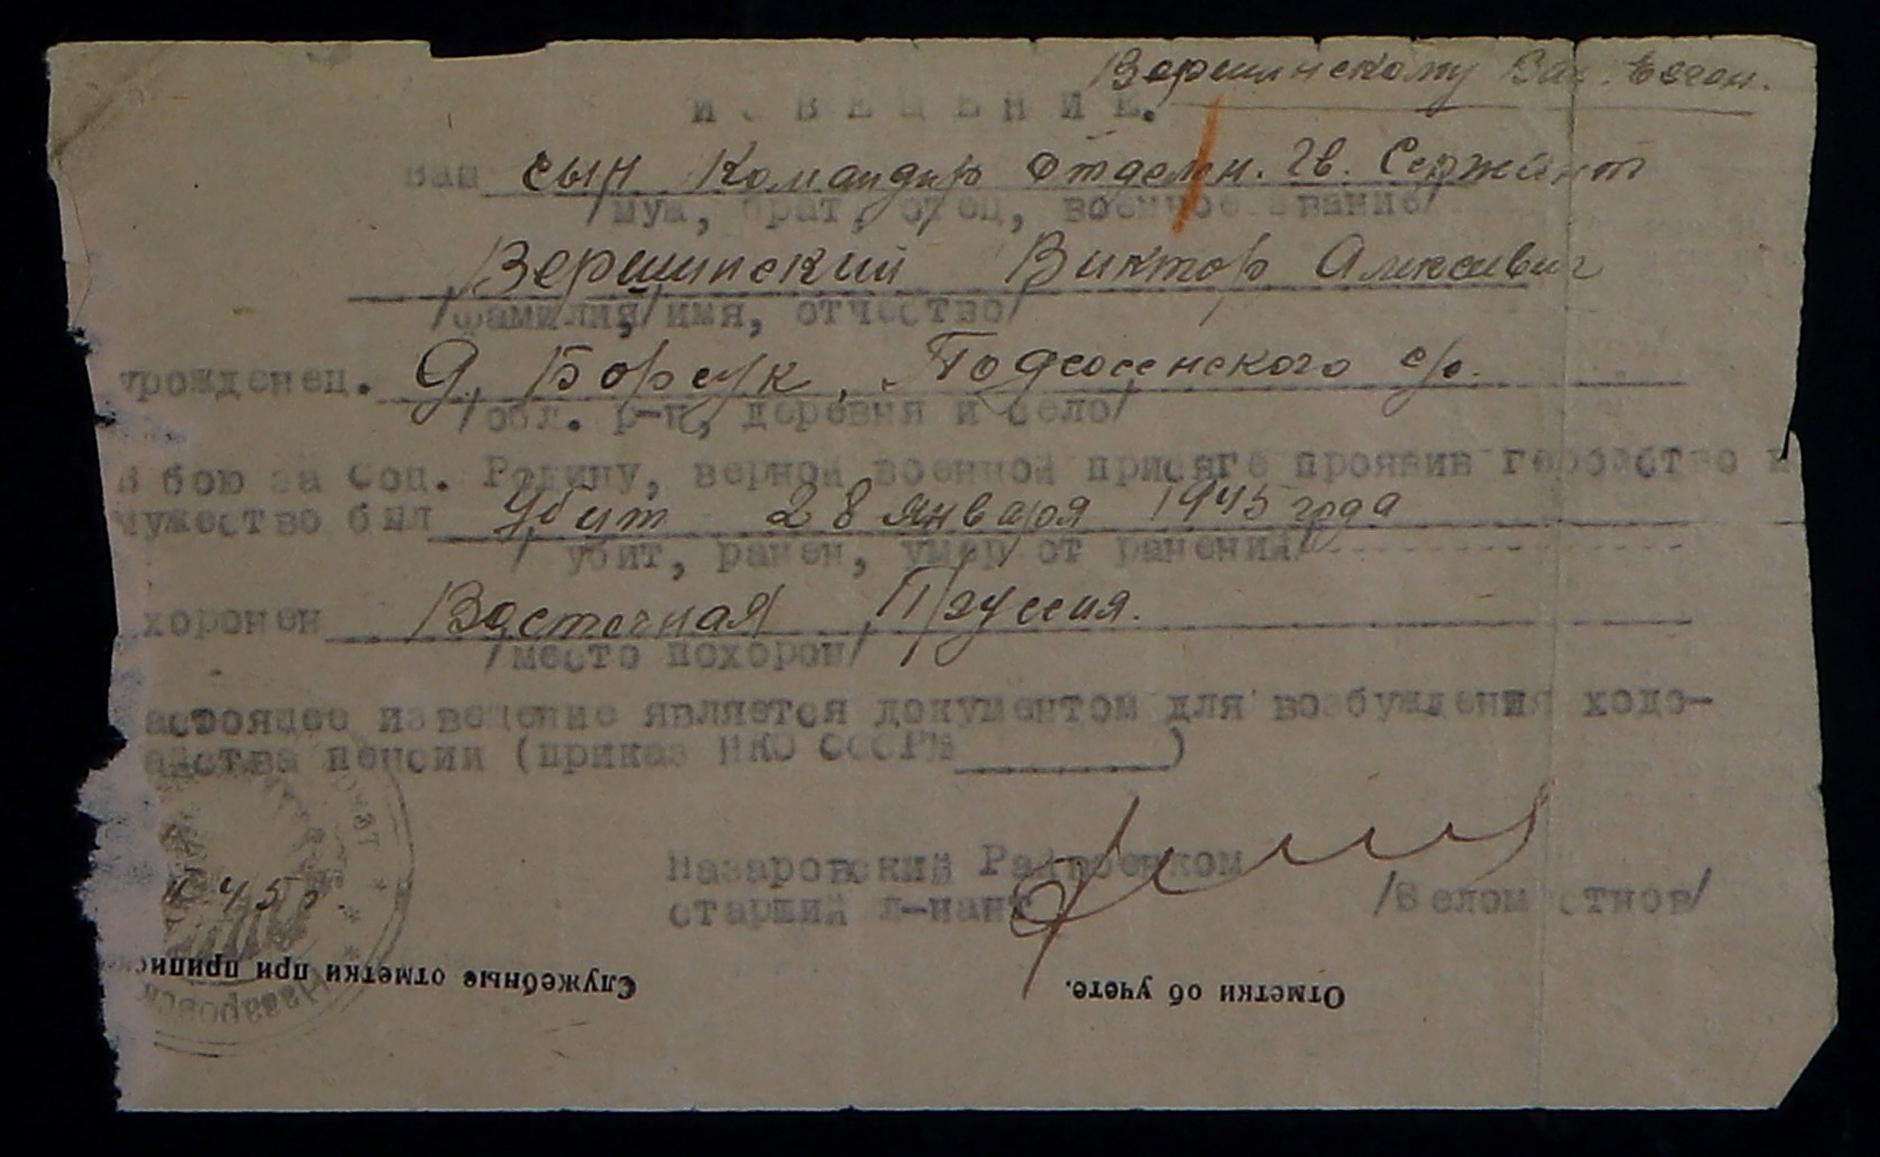 Вершинскому Вас. Евген.
ИЗВЕЩЕНИЕ.
Ваш сын Командир Отделен. Гв. Сержант
/муж, брат, отец, военное звание/
Вершинский Виктор Алексеевич
/фамилия, имя, отчество/
уроженец. д. Борсук, Подсосенского с/с.
/обл. р-н, деревня и село/
В бою за Соц. Родину, верной военной присяге проявив геройство и
мужество был убит 28 января 1945 года
/убит, ранен, умер от ранения/
хоронен Восточная Пруссия.
/место похорон/
астоящее извещение является документом для возбуждения ходо-
айства пенсии (приказ НКО СССР№ )
Назаровский Райвоенком
старший л-нант /Беломестнов/
45 г.
Служебные отметки при припис
Отметки об учете.
Назаровск